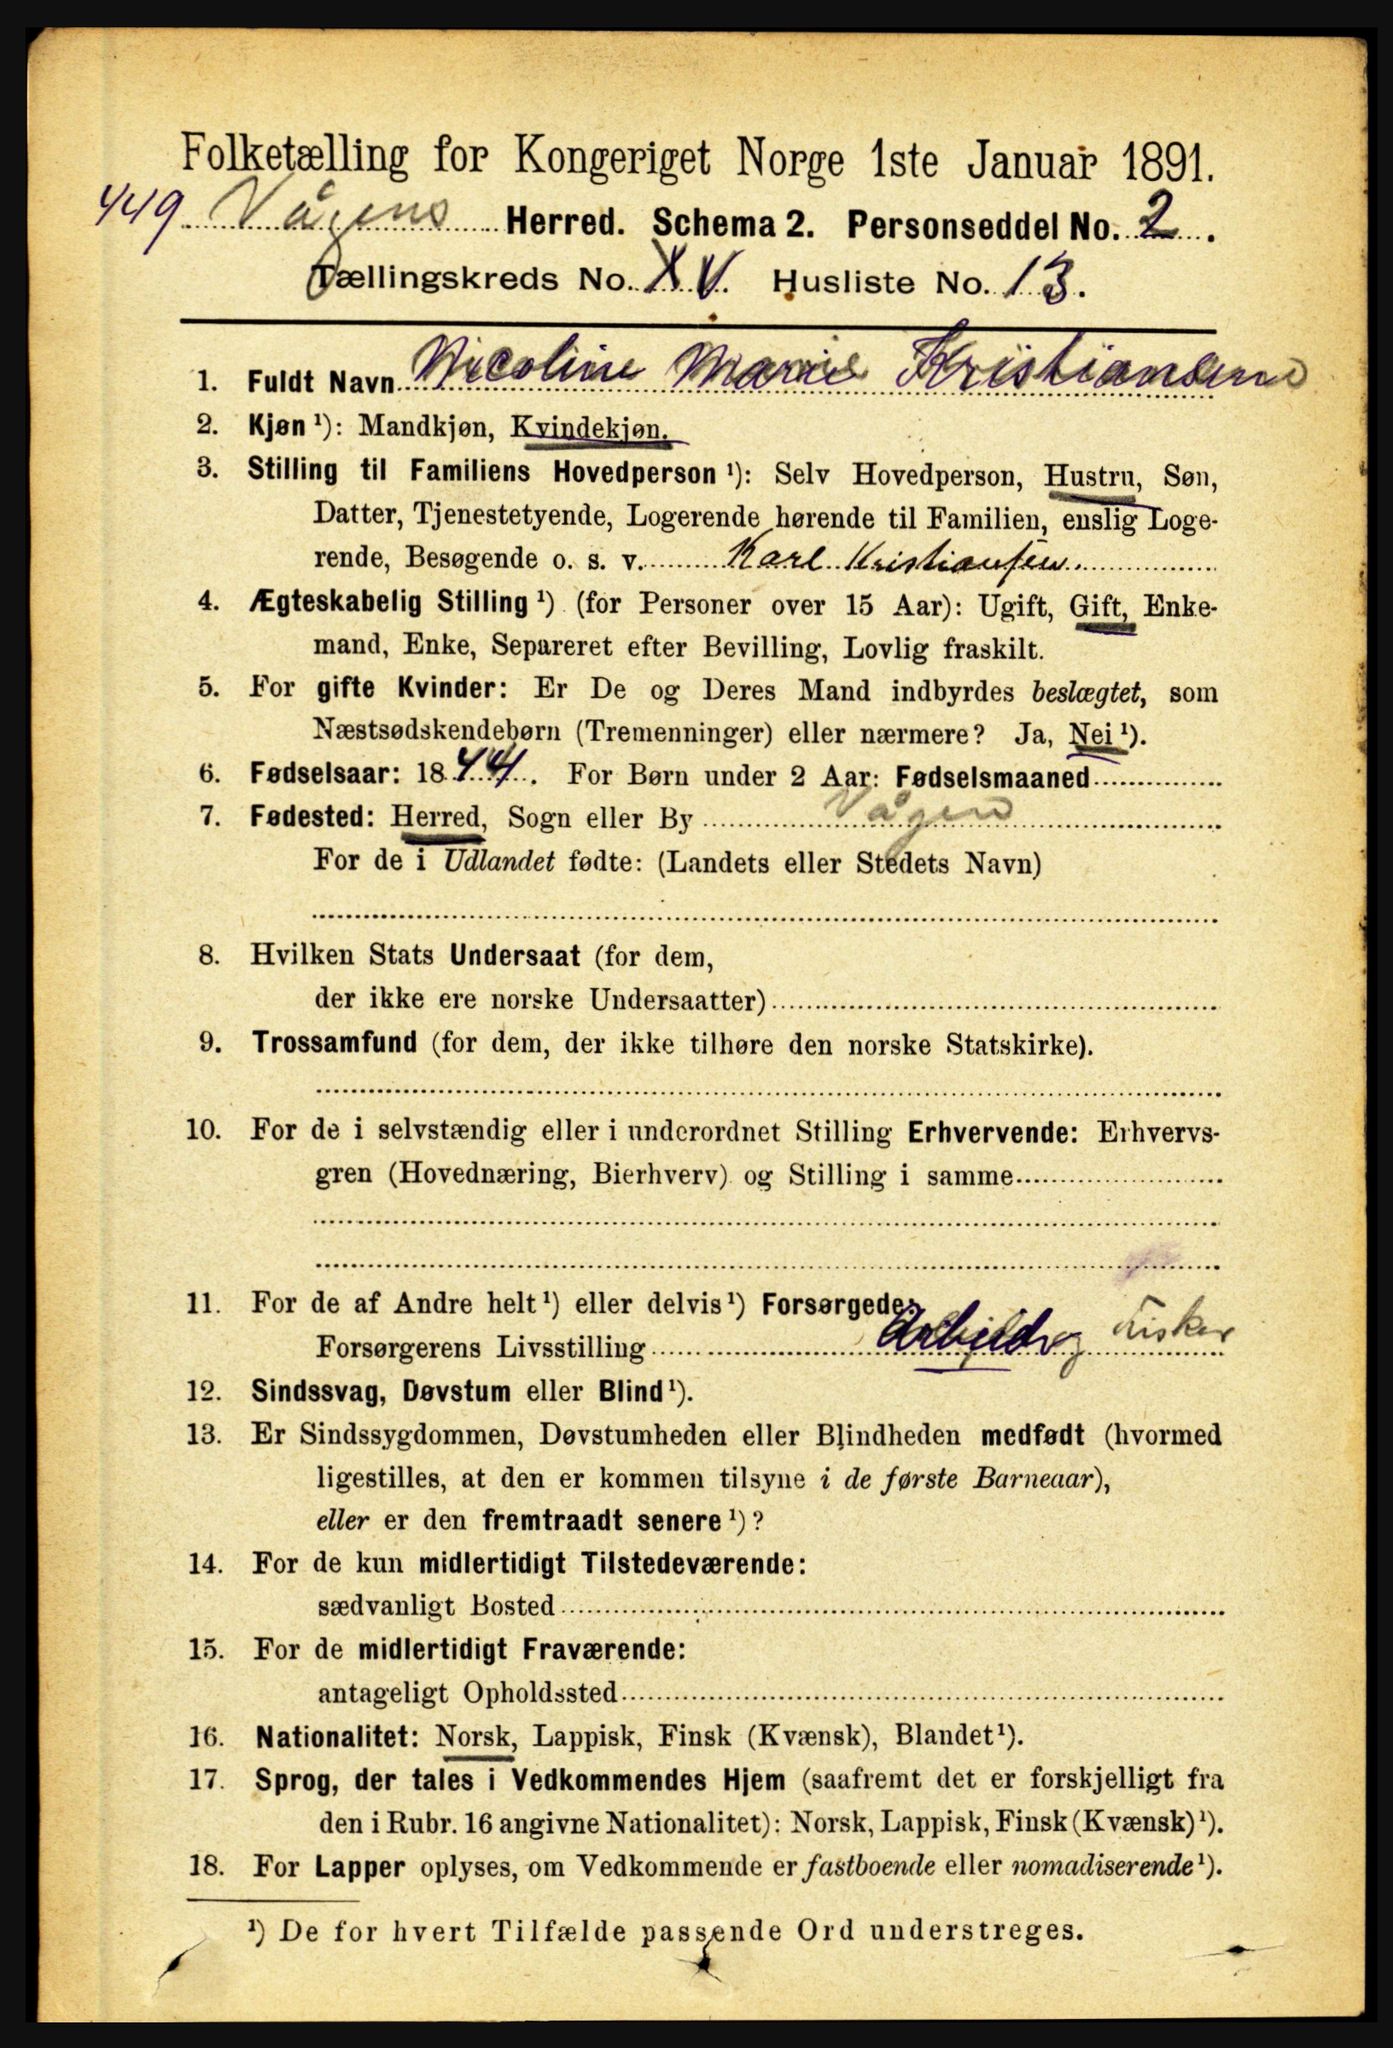 Folketælling for Kongeriget Norge 1ste Januar 1891.
449 Vågens Herred. Schema 2. Personseddel No. 2.
Tællingskreds No. XV. Husliste No. 13.
1. Fuldt Navn Nicoline Marie Kristiansen
2. Kjøn ¹): Mandkjøn, Kvindekjøn.
3. Stilling til Familiens Hovedperson ¹): Selv Hovedperson, Hustru, Søn,
Datter, Tjenestetyende, Logerende hørende til Familien, enslig Loge-
rende, Besøgende o. s. v. Karl Kristiansen.
4. Ægteskabelig Stilling ¹) (for Personer over 15 Aar): Ugift, Gift, Enke-
mand, Enke, Separeret efter Bevilling, Lovlig fraskilt.
5. For gifte Kvinder: Er De og Deres Mand indbyrdes beslægtet, som
Næstsødskendebørn (Tremenninger) eller nærmere? Ja, Nei ¹).
6. Fødselsaar: 1844. For Børn under 2 Aar: Fødselsmaaned
7. Fødested: Herred, Sogn eller By Vågen
For de i Udlandet fødte: (Landets eller Stedets Navn)
8. Hvilken Stats Undersaat (for dem,
der ikke ere norske Undersaatter)
9. Trossamfund (for dem, der ikke tilhøre den norske Statskirke).
10. For de i selvstændig eller i underordnet Stilling Erhvervende: Erhvervs-
gren (Hovednæring, Bierhverv) og Stilling i samme
11. For de af Andre helt ¹) eller delvis ¹) Forsørgede:
Forsørgerens Livsstilling Fisker
12. Sindssvag, Døvstum eller Blind ¹).
13. Er Sindssygdommen, Døvstumheden eller Blindheden medfødt (hvormed
ligestilles, at den er kommen tilsyne i de første Barneaar),
eller er den fremtraadt senere ¹)?
14. For de kun midlertidigt Tilstedeværende:
sædvanligt Bosted
15. For de midlertidigt Fraværende:
antageligt Opholdssted
16. Nationalitet: Norsk, Lappisk, Finsk (Kvænsk), Blandet ¹).
17. Sprog, der tales i Vedkommendes Hjem (saafremt det er forskjelligt fra
den i Rubr. 16 angivne Nationalitet): Norsk, Lappisk, Finsk (Kvænsk) ¹).
18. For Lapper oplyses, om Vedkommende er fastboende eller nomadiserende ¹).
¹) De for hvert Tilfælde passende Ord understreges.